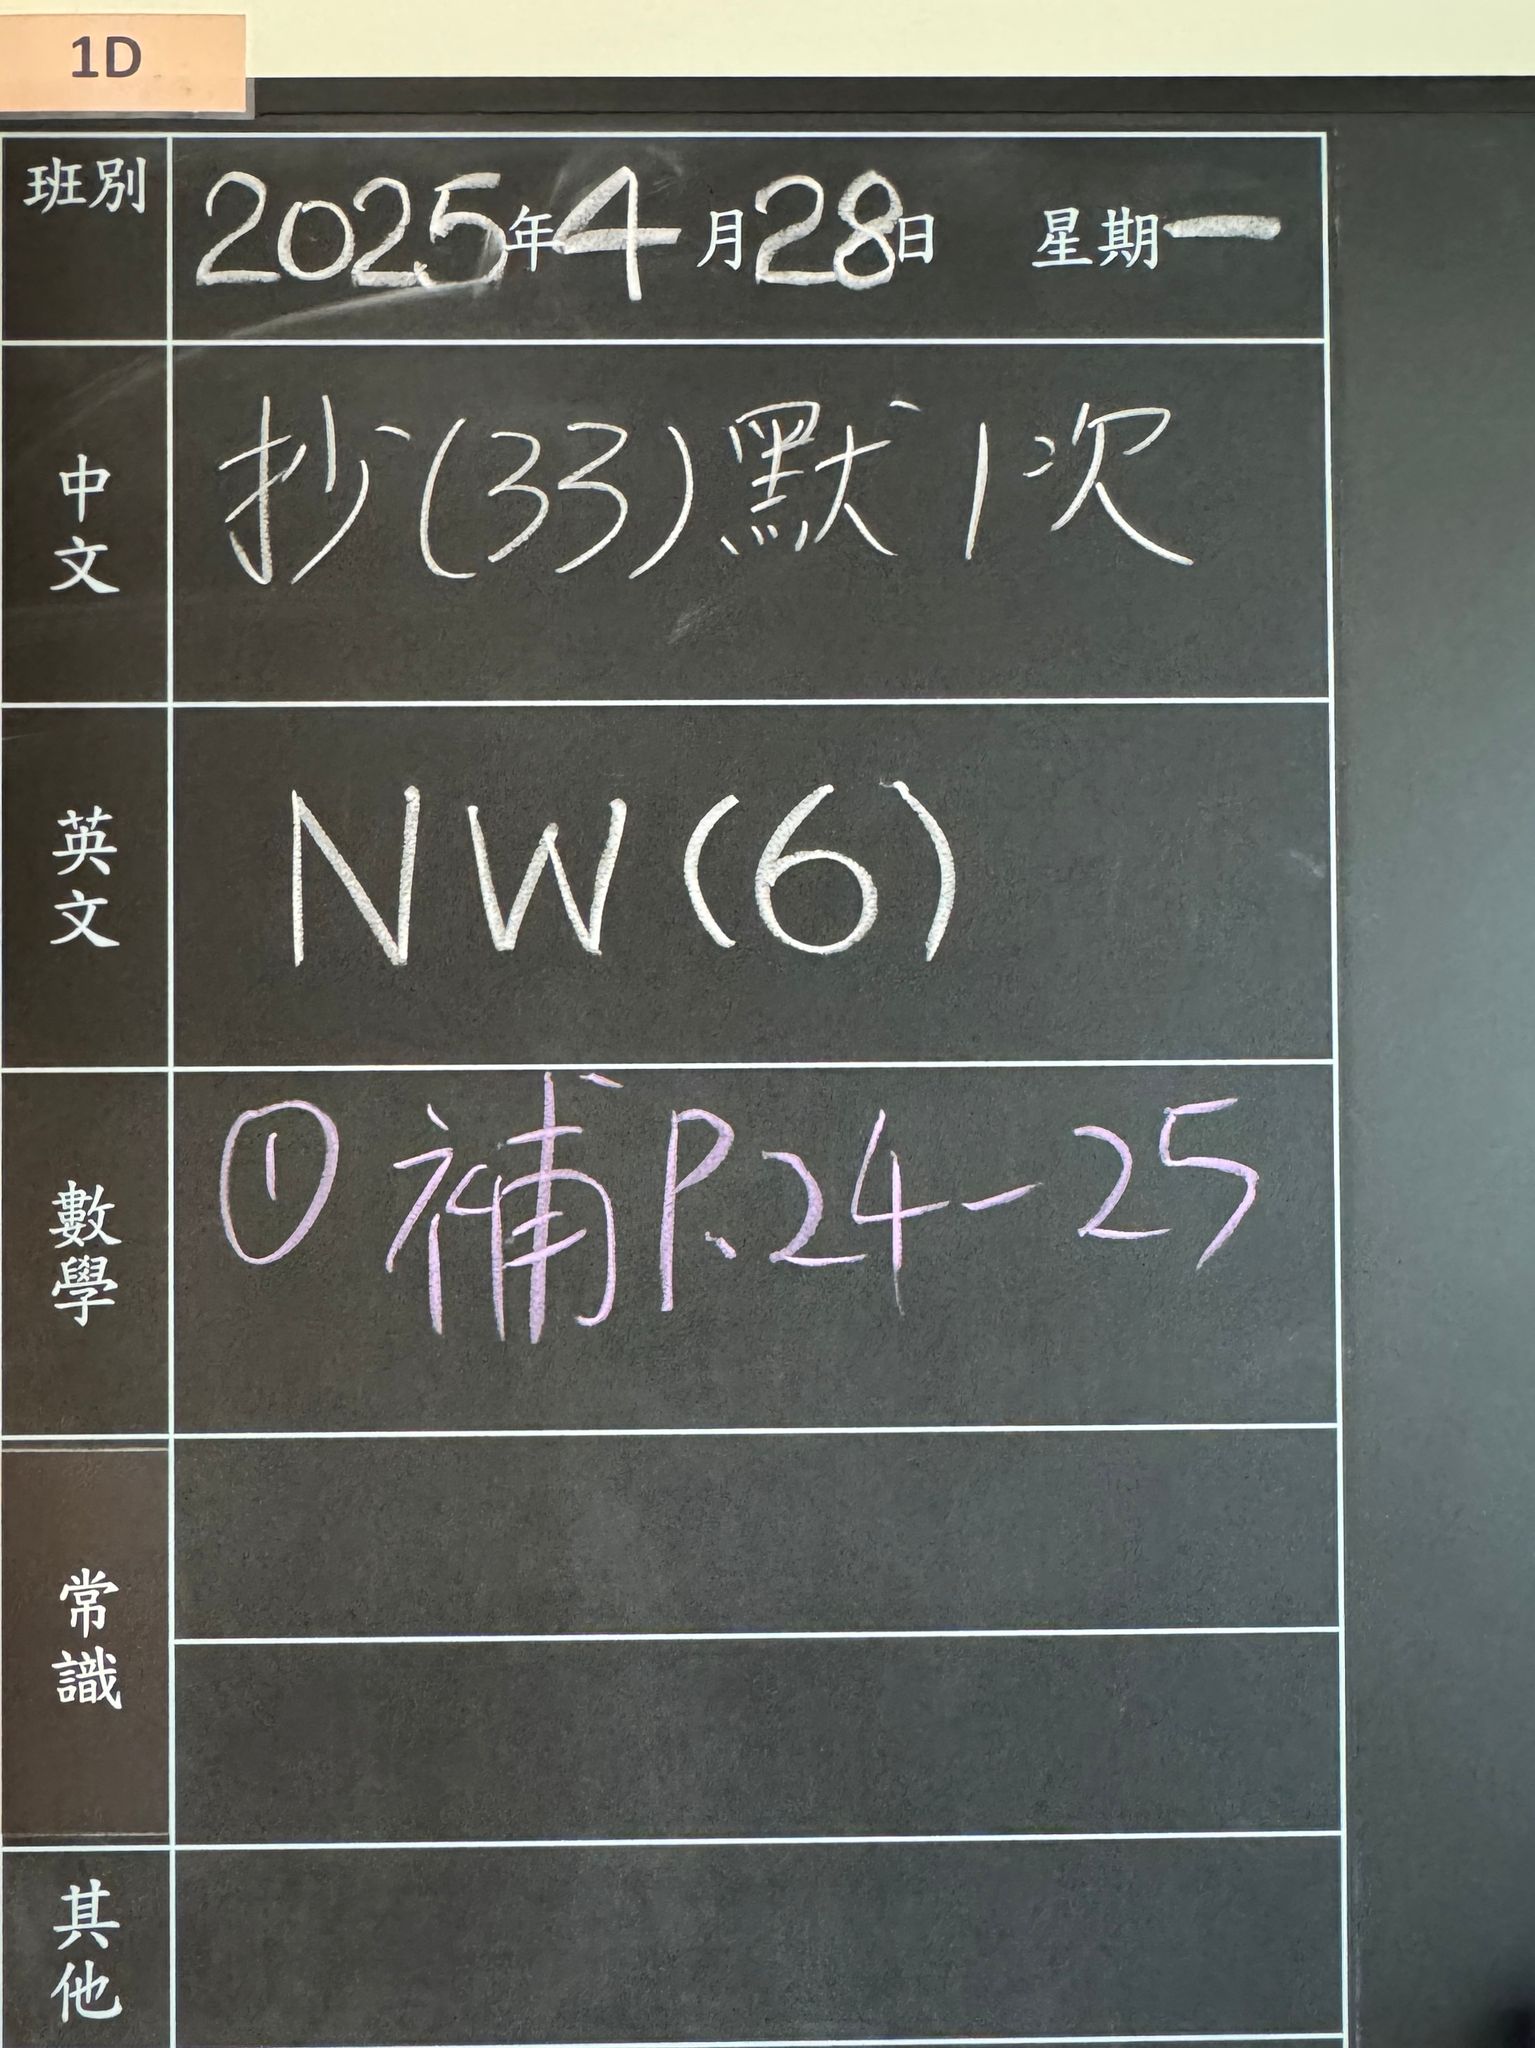 1D
班別 2025年4月28日 星期一
中文 抄(33)默1次
英文 NW(6)
數學 ①補P.24-25
常識
其他